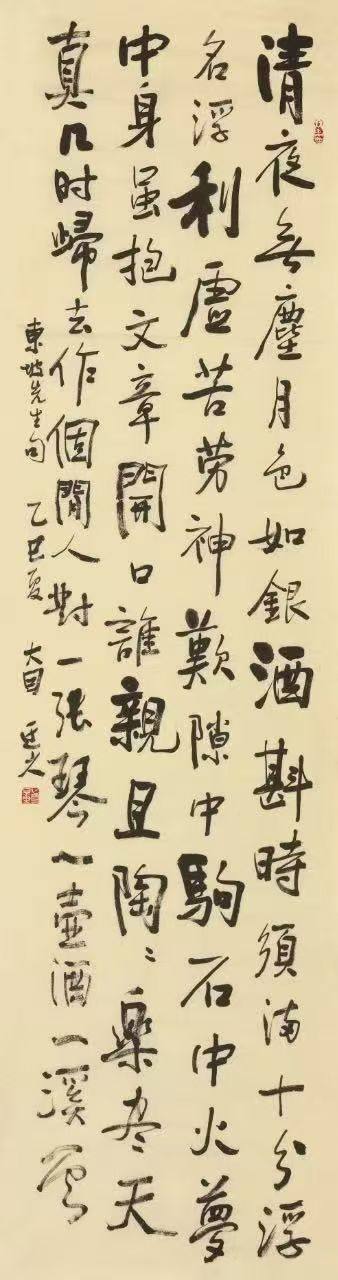 清夜無塵月色如銀酒斟時須满十分浮
名浮利虛苦劳神歎隙中駒石中火夢
中身虽抱文章開口誰親且陶〻樂尽天
真几时歸去作個閒人對一張琴一壺酒一溪雲
東坡先生句 乙巳夏